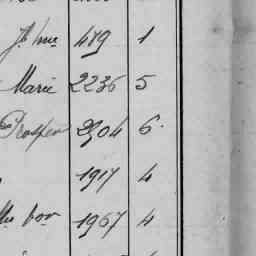 489 1
Marie 2236 5
Prosper 2904 6
1917 4
1967 4